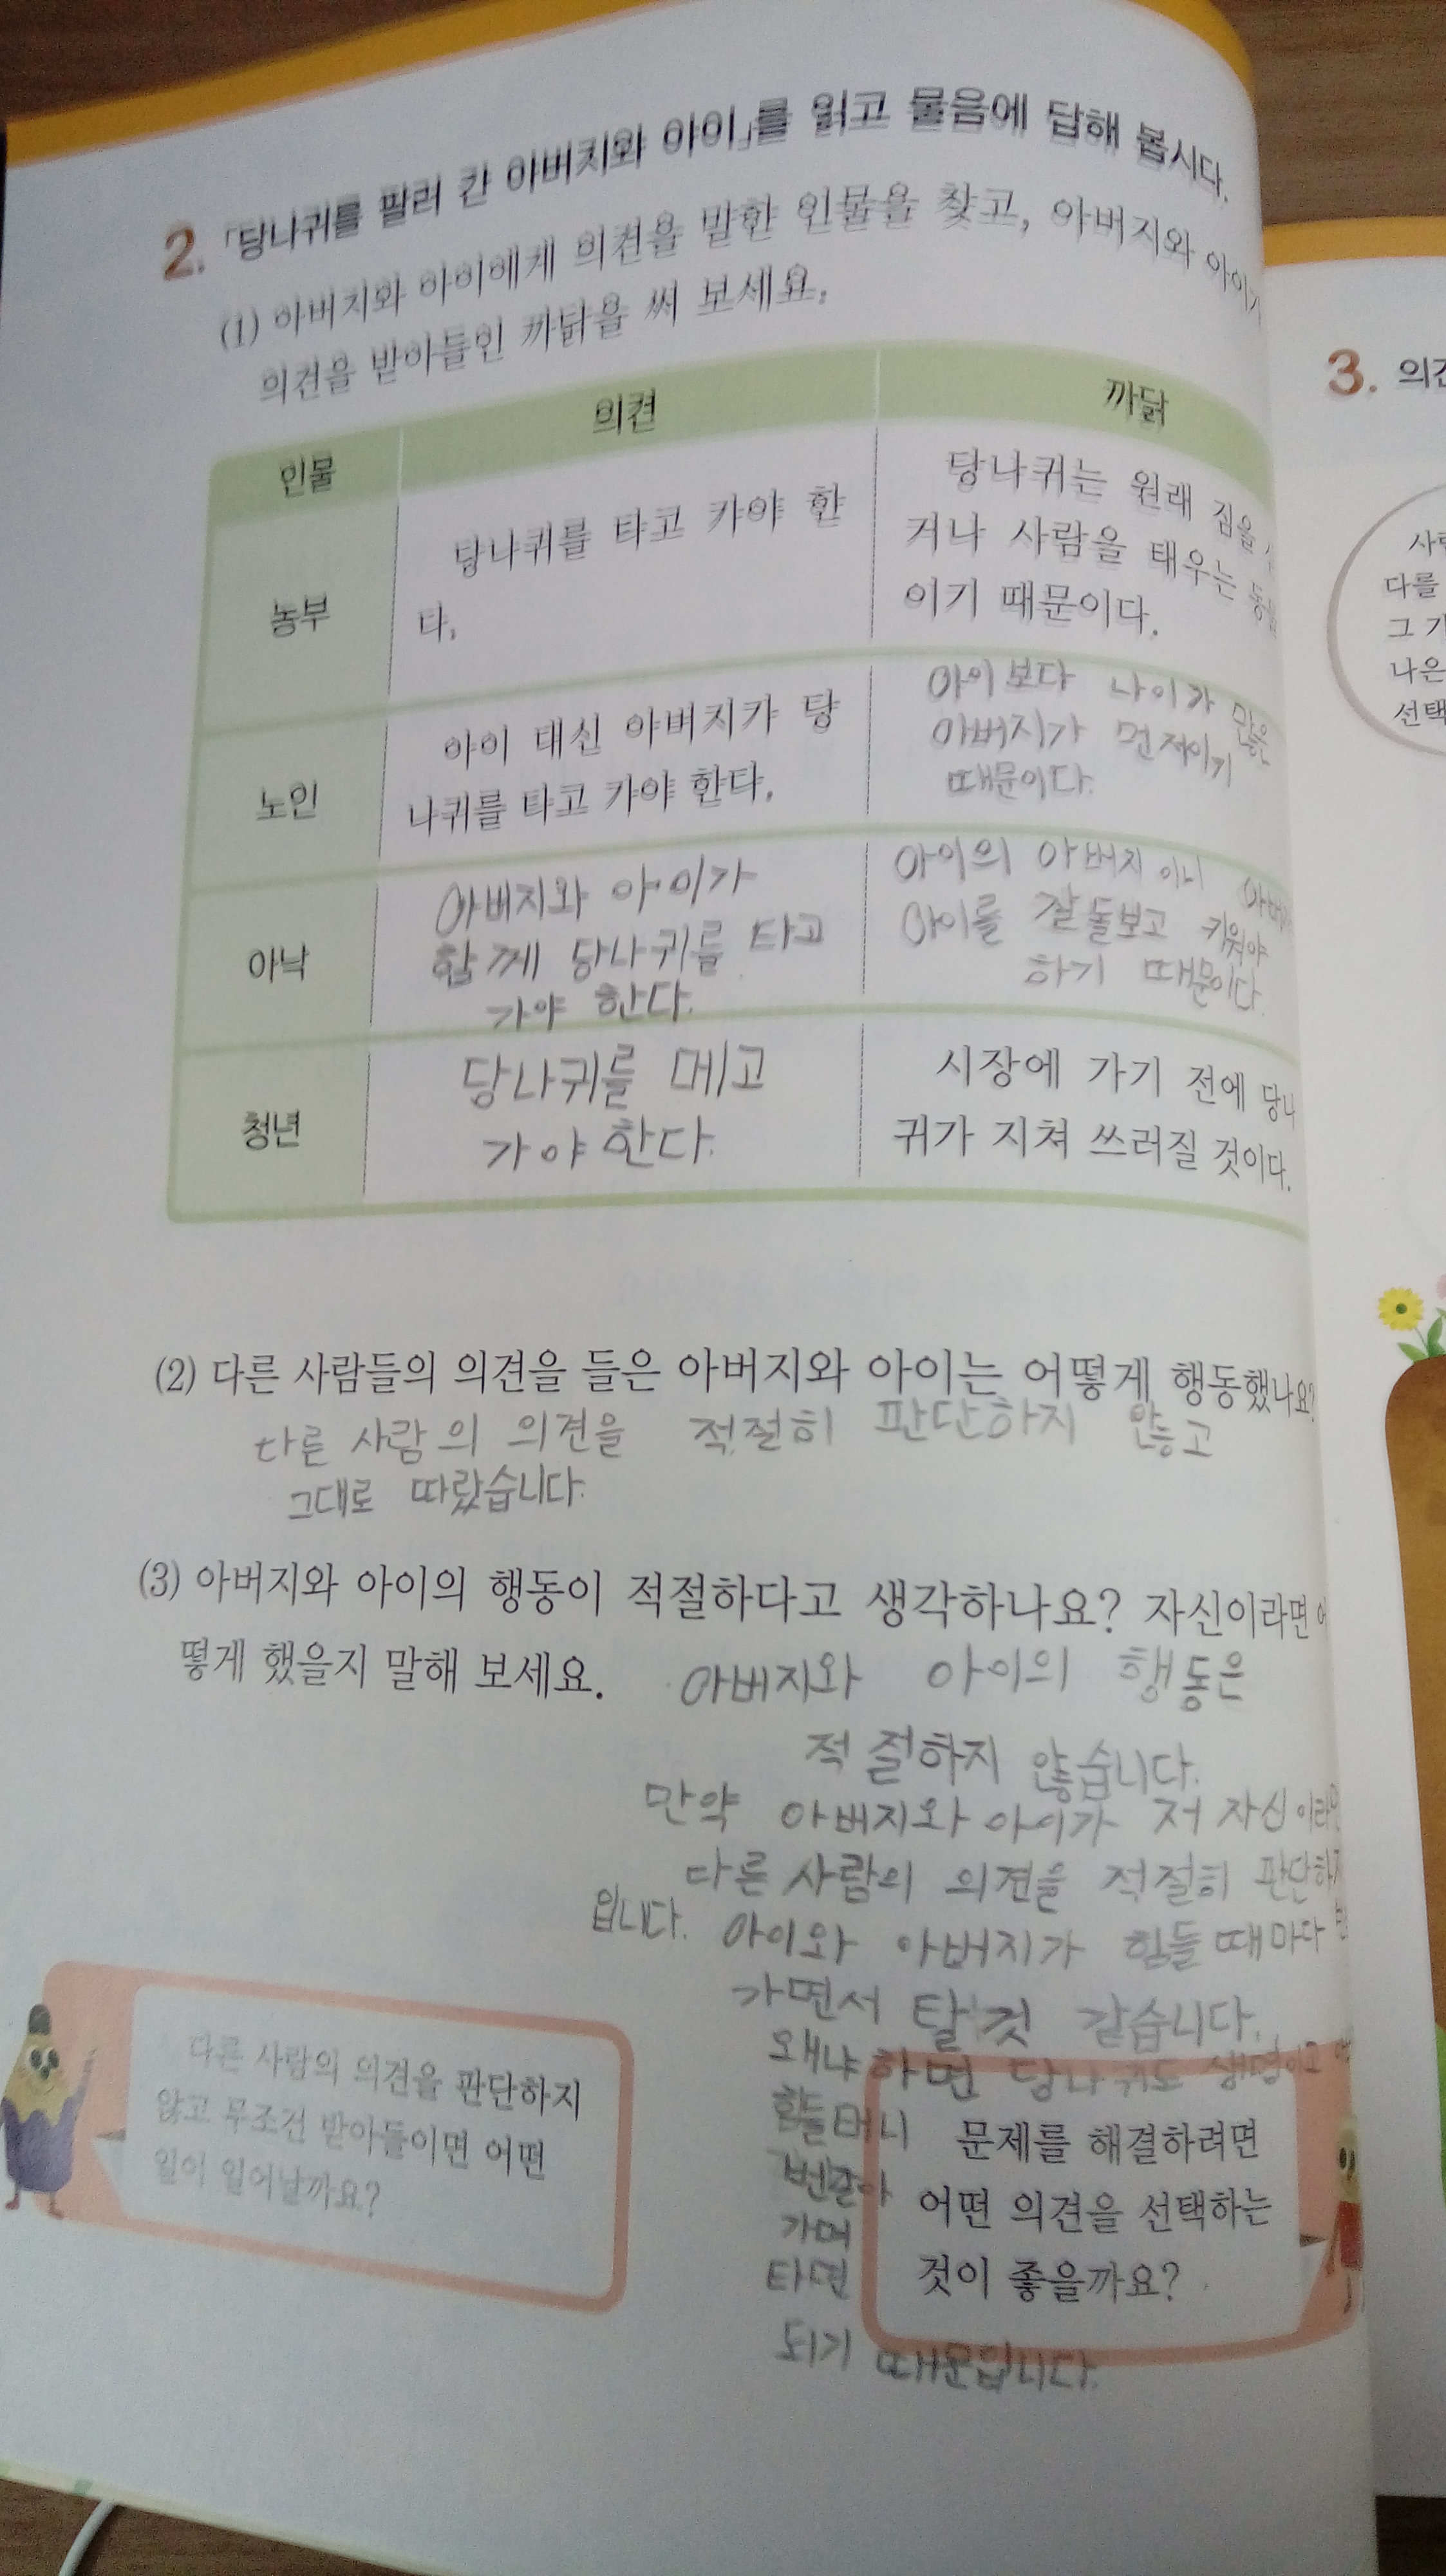 2. 「당나귀를 팔러 간 아버지와 아이」를 읽고 물음에 답해 봅시다.
(1) 아버지와 아이에게 의견을 말한 인물을 찾고, 아버지와 아이가
의견을 받아들인 까닭을 써 보세요.
인물 의견 까닭
농부
당나귀를 타고 가야 한
다.
당나귀는 원래 짐을
거나 사람을 태우는 동물
이기 때문이다.
노인
아이 대신 아버지가 당
나귀를 타고 가야 한다.
아이보다 나이가 많은
아버지가 먼저이기
때문이다.
아낙
아버지와 아이가
함께 당나귀를 타고
가야 한다.
아이의 아버지이니
아이를 잘 돌보고 키워야
하기 때문이다.
청년
당나귀를 메고
가야 한다.
시장에 가기 전에 당나
귀가 지쳐 쓰러질 것이다.
(2) 다른 사람들의 의견을 들은 아버지와 아이는 어떻게 행동했나요?
다른 사람의 의견을 적절히 판단하지 않고
그대로 따랐습니다.
(3) 아버지와 아이의 행동이 적절하다고 생각하나요? 자신이라면 어
떻게 했을지 말해 보세요.
아버지와 아이의 행동은
적절하지 않습니다.
만약 아버지와 아이가 저 자신이라면
다른 사람의 의견을 적절히 판단하
입니다. 아이와 아버지가 힘들 때마다
가면서 탈 것 같습니다.
왜냐하면 당나귀도 생명이고
힘들테니
번갈아
가며
타면
되기 때문입니다.
다른 사람의 의견을 판단하지
않고 무조건 받아들이면 어떤
일이 일어날까요?
문제를 해결하려면
어떤 의견을 선택하는
것이 좋을까요?
3.
다를
나은
선택